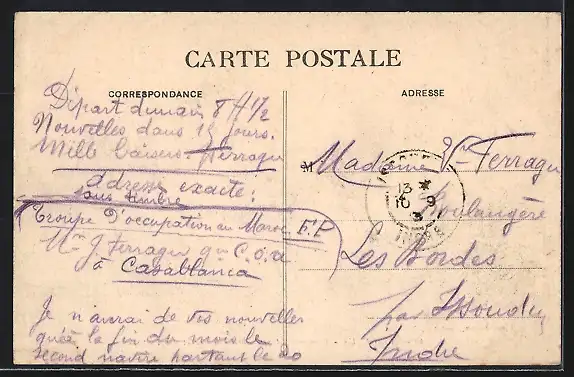 CARTE POSTALE
CORRESPONDANCE
ADRESSE
Départ demain 8 H 1/2
Nouvelles dans 15 jours.
Mille baisers. Ferragu
adresse exacte:
sans timbre
Troupe d'occupation au Maroc F.P
J. Ferragu
à Casablanca
Je n'aurai de vos nouvelles
qu'à la fin du mois le
second navire partant le 20
M
Madame Vve Ferragu
Boulangère
Les Bordes
par Issoudun
Indre
13
10 9